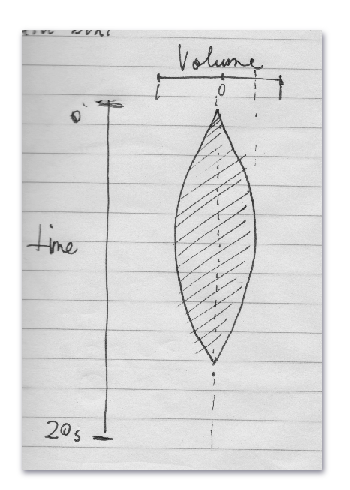 Volume
0
0
time
20s